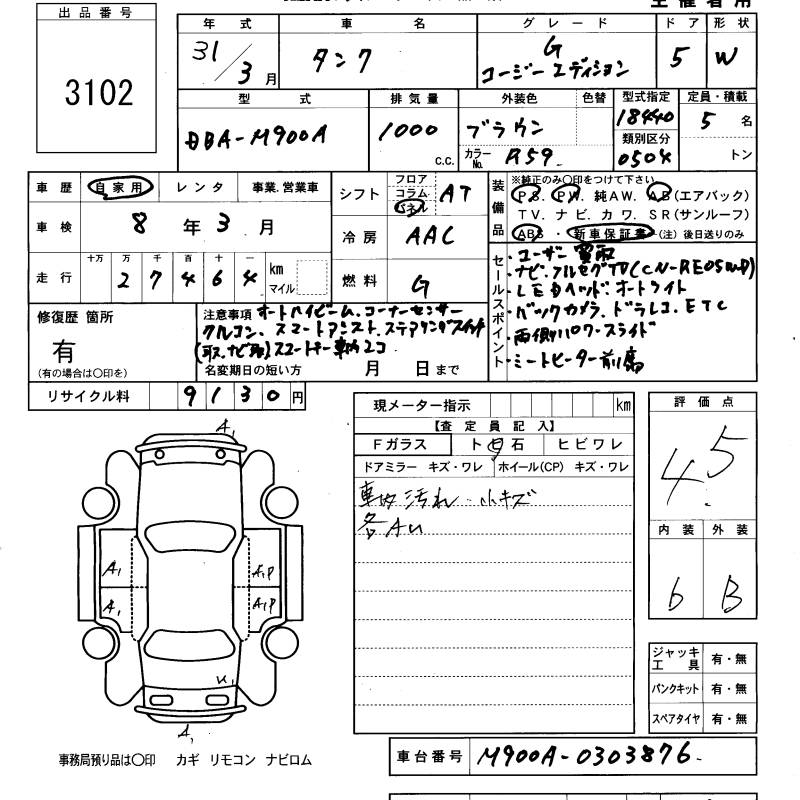 出品番号
3102
年式
31年3月
車名
タンク
グレード
G
コージーエディション
ドア
5
形状
W
型式
DBA-M900A
排気量
1000 c.c.
外装色
ブラウン
色替
カラーNo. R59
型式指定
18440
類別区分
0504
定員・積載
5名
トン
車歴 自家用 レンタ 事業.営業車
車検 8年3月
走行 十万 万 千 百 十
27464 km
マイル
シフト フロア コラム パネル AT
冷房 AAC
燃料 G
装備品
※純正のみ○印をつけて下さい
P.S. P.W. 純AW. AB(エアバック)
TV. ナビ. カワ. SR(サンルーフ)
ABS ・ 新車保証書 (注)後日送りのみ
セールスポイント
・ユーザー買取
・ナビ.フルセグTV(CN-RE05WD)
・LEDヘッド.オートライト
・バックカメラ.ドラレコ.ETC
・両側パワースライド
・シートヒーター前席
修復歴 箇所
有
(有の場合は○印を)
注意事項 オートハイビーム.コーナーセンサー
クルコン.スマートアシスト.ステアリングスイッチ
(取.ナビ取)スマートキー車内2コ
名変期日の短い方 月 日まで
リサイクル料 9130円
現メーター指示 km
【査定員記入】
Fガラス ト石 ヒビワレ
ドアミラー キズ・ワレ ホイール(CP) キズ・ワレ
車内汚れ.小キズ
各AU
評価点
4.5
内装 外装
6 B
ジャッキ工具 有・無
パンクキット 有・無
スペアタイヤ 有・無
A1
A1
A1P
A1
A1P
U1
A1
事務局預り品は○印 カギ リモコン ナビロム
車台番号 M900A-0303876.